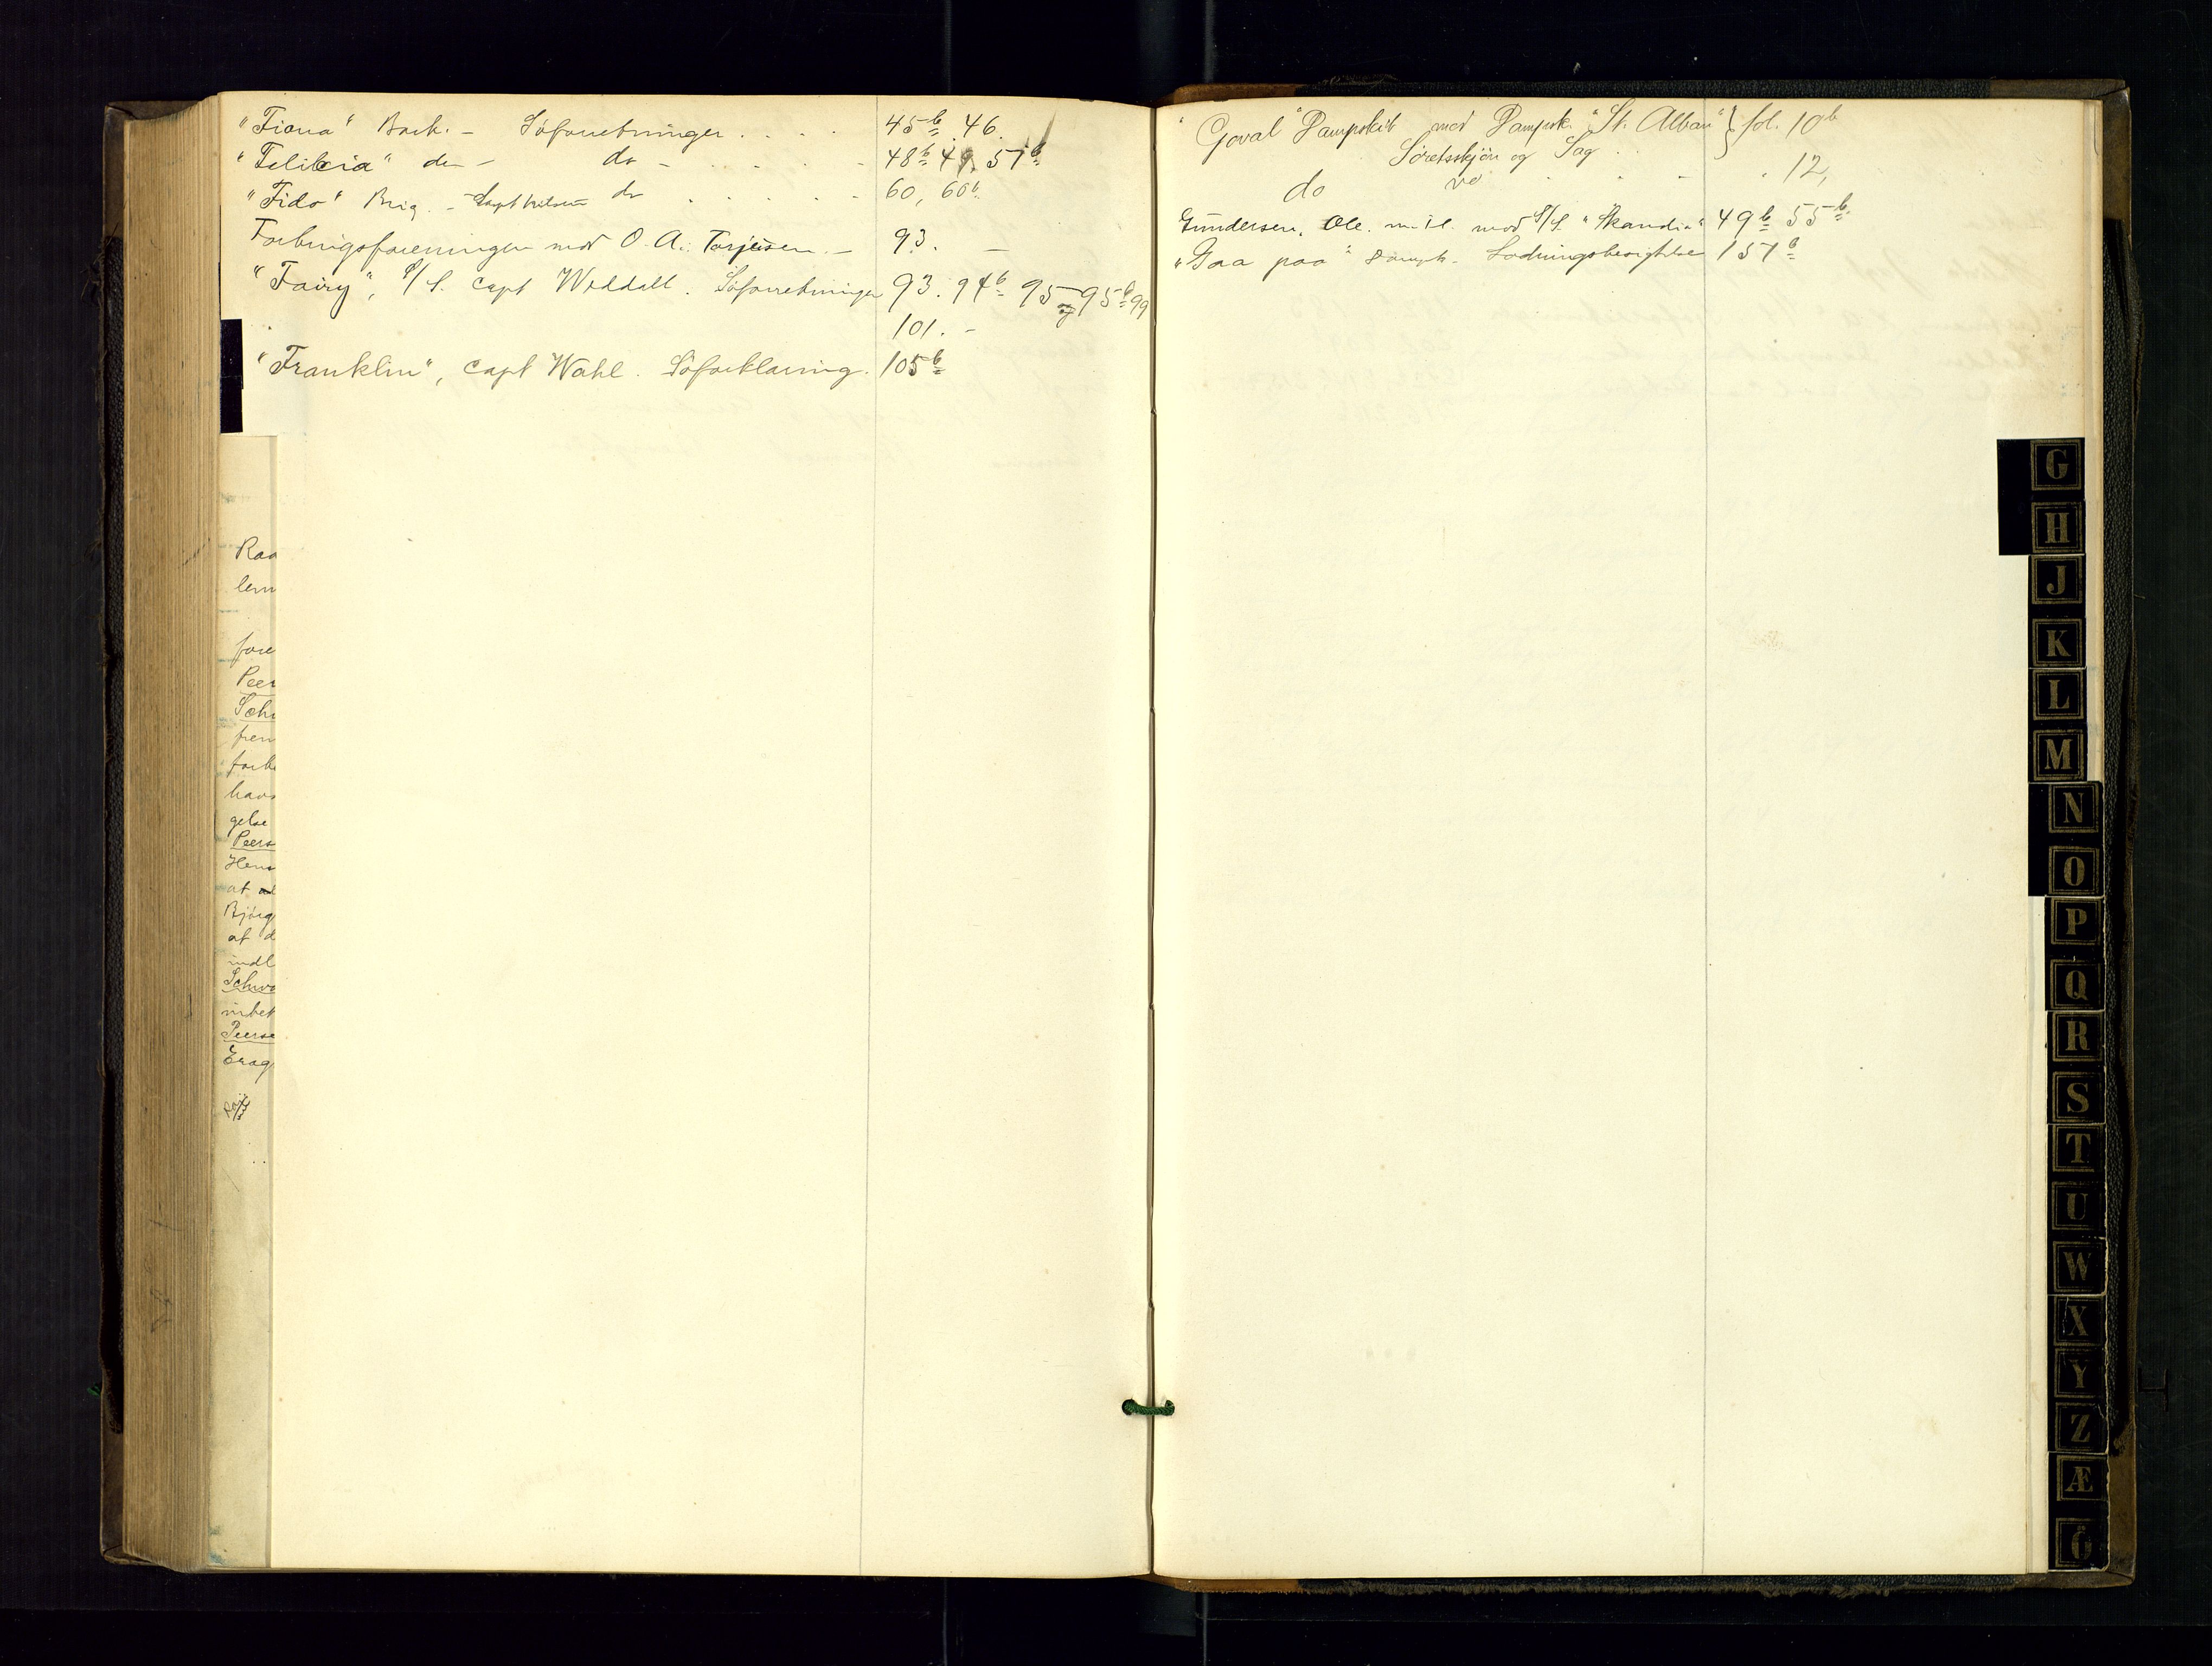 "Fiona" Bark. - Söforretninger . . . . 45b 46.
"Felicia" do - do - . . . . 48b 49. 51b
"Fido" Brig. - Capt Nilsen do . . . . . 60, 60b.
Forbrugsforeningen mod O. A. Torjesen. - 93. -
"Fairy", S/S. Capt Weddall. Söforretninger 93. 94b 95 og 95b 99
101. -
"Franklin", Capt Wahl. Söforklaring. 105b
Raa
lem
fore
Peer
Sch
frem
forb
havs
gelse
Peers
Hens
at
Björg
at d
indl
Schwa
Peerse
"Goval" Dampskib mod Dampsk. "St. Alban" } fol. 10b
Söretsskjön og Sag
do . . - . 12,
Gundersen, Ole. m. fl. mod S/S. "Skandia" 49b 55b
"Gaa paa" Dampsk. Lodningsbesigtelse 151b
G
H
J
K
L
M
N
O
P
Q
R
S
T
U
W
X
Y
Z
Æ
Ö